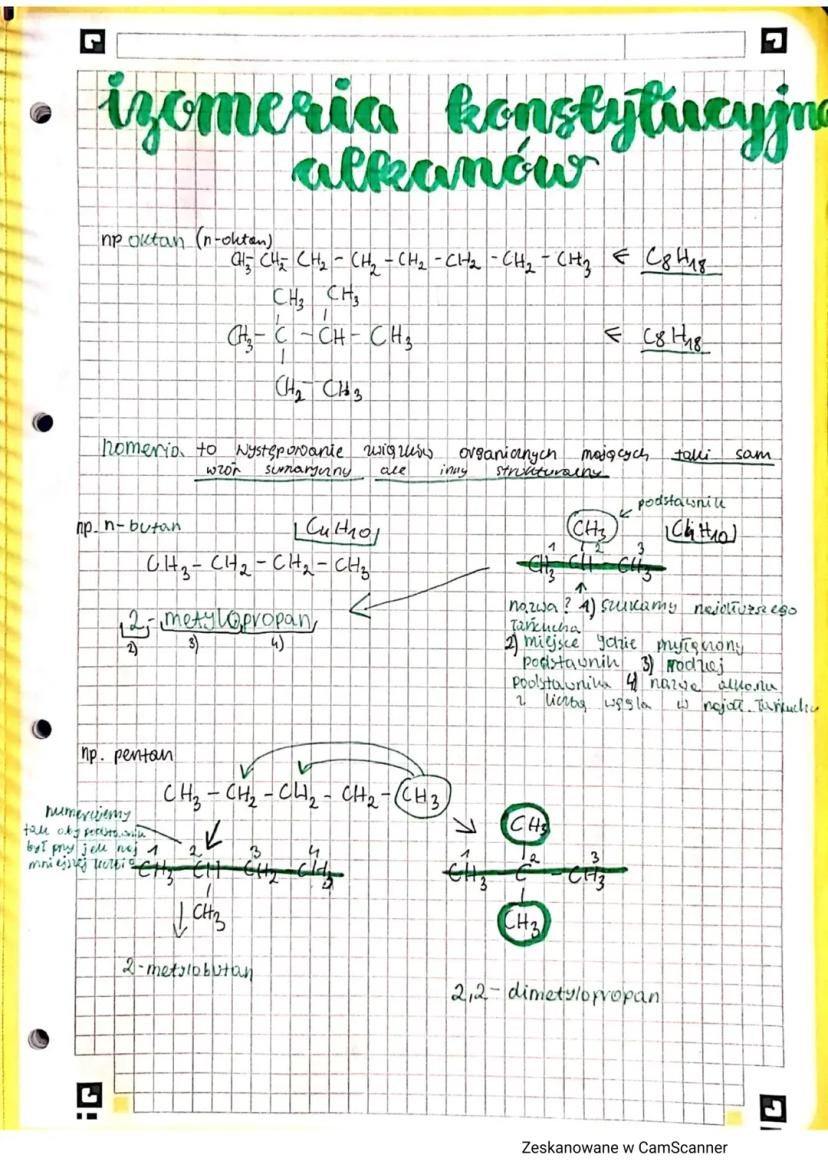 izomeria konstytucyjna
alkanów
np oktan (n-oktan)
CH3-CH2-CH2-CH2-CH2-CH2-CH2-CH3 ← C8H18
CH3 CH3
CH3-C-CH-CH3 ← C8H18
CH2-CH3
izomeria to występowanie związków organicznych mających taki sam
wzór sumaryczny ale inny strukturalny
podstawnik
np. n-butan C4H10
CH3 C4H10
CH3-CH2-CH2-CH3
1 2 3
CH3-CH-CH3
2-metylopropan
2) 3) 4)
nazwa? 1) szukamy najdłuższego
łańcucha
2) miejsce gdzie przyłączony
podstawnik 3) rodzaj
podstawnika 4) nazwa alkanu
z liczbą węgla w najdł. łańcuchu
np. pentan
CH3-CH2-CH2-CH2-CH3
numerujemy
tak aby podstawnik
był przy jak naj
mniejszej liczbie
1 2 3 4
CH3-CH-CH2-CH3
CH3
2-metylobutan
CH3
1 2 3
CH3-C-CH3
CH3
2,2-dimetylopropan
Zeskanowane w CamScanner